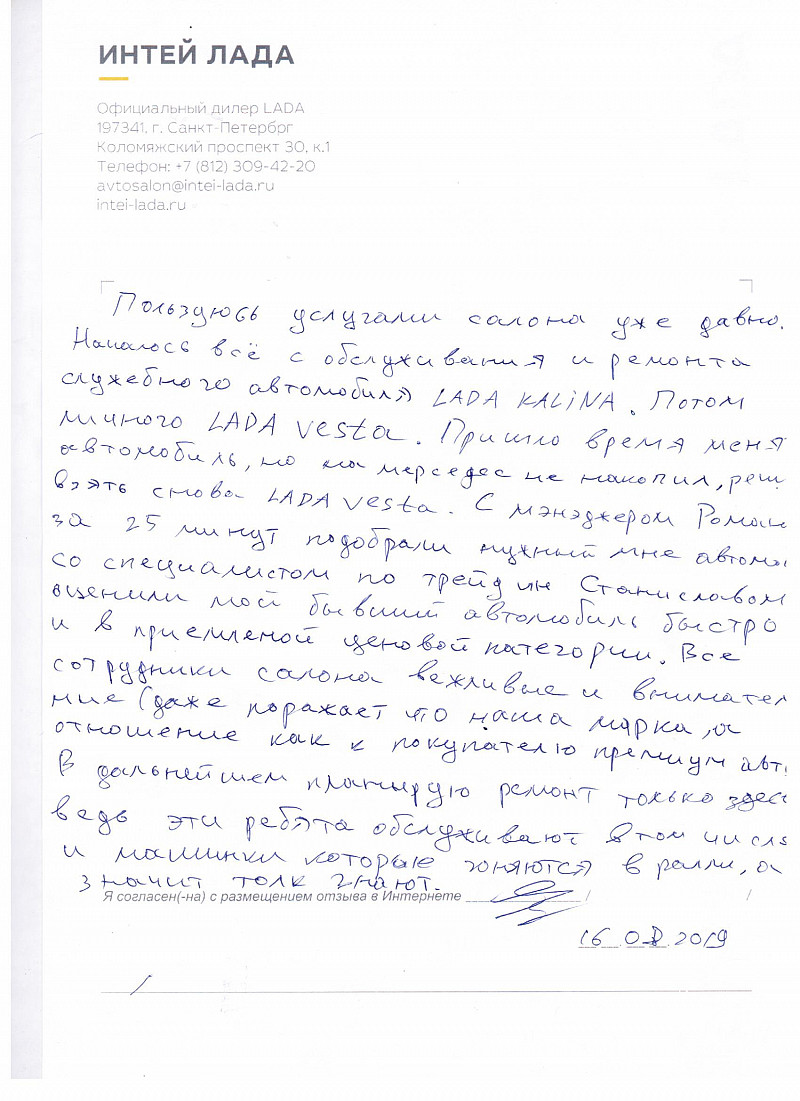 ИНТЕЙ ЛАДА
Официальный дилер LADA
197341, г. Санкт-Петербрг
Коломяжский проспект 30, к.1
Телефон: +7 (812) 309-42-20
avtosalon@intei-lada.ru
intei-lada.ru
Пользуюсь услугами салона уже давно.
Началось всё с обслуживания и ремонта
служебного автомобиля LADA KALINA. Потом
личного LADA Vesta. Пришло время менят
автомобиль, но на мерседес не накопил, реш
взять снова LADA Vesta. С мэнэджером Роман
за 25 минут подобрали нужный мне автомо
со специалистом по трейд ин Станиславом
оценили мой бывший автомобиль быстро
и в приемленой ценовой категории. Все
сотрудники салона вежливые и внимател
ние (даже поражает что наша марка, а
отношение как к покупателю премиум авт
В дальнейшем планирую ремонт только здес
ведь эти ребята обслуживают в том числе
и машинки которые гоняются в ралли, а
значит толк знают.
Я согласен(-на) с размещением отзыва в Интернете / /
16.08.2019